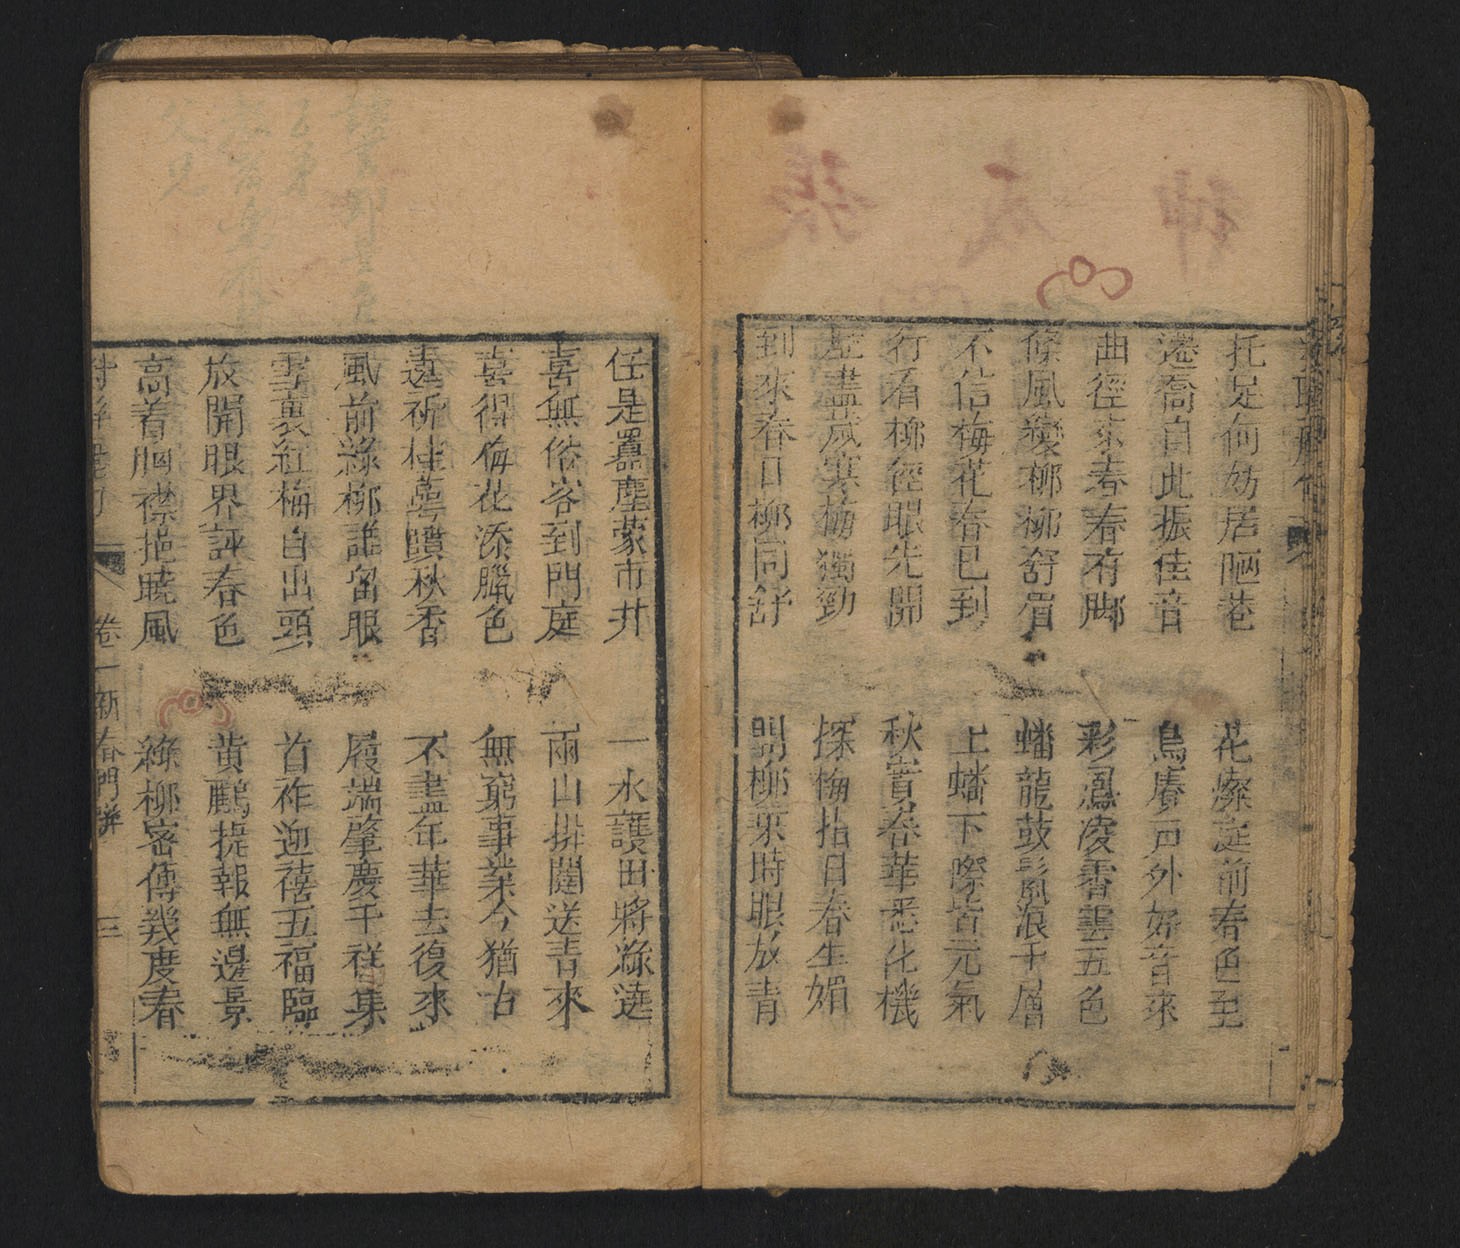 托足何妨居陋巷
花燦庭前春色至
遷喬自此振佳音
鳥賡戸外好音來
曲徑東春春有脚
彩鳳凌香雲五色
條風纔柳柳舒眉
蟠龍鼓鬣浪千層
不信梅花春已到
上蟠下際皆元氣
行看柳徑眼先開
秋實春華悉化機
歷盡歲寒梅獨勁
探梅指日春生媚
到來春日柳同舒
問柳來時眼放青
任是囂塵蒙市井
一水護田將綠遶
喜無俗客到門庭
兩山排闥送青來
喜得梅花添臘色
無窮事業今猶古
遠祈桂蕚噴秋香
不盡年華去復來
風前綠柳誰留眼
履端肇慶千祥集
雪裏紅梅自出頭
首祚迎禧五福臨
放開眼界評春色
黄鸝捷報無邊景
高着胸襟挹曉風
綠柳密傳幾度春
卷一 新春門聯
三